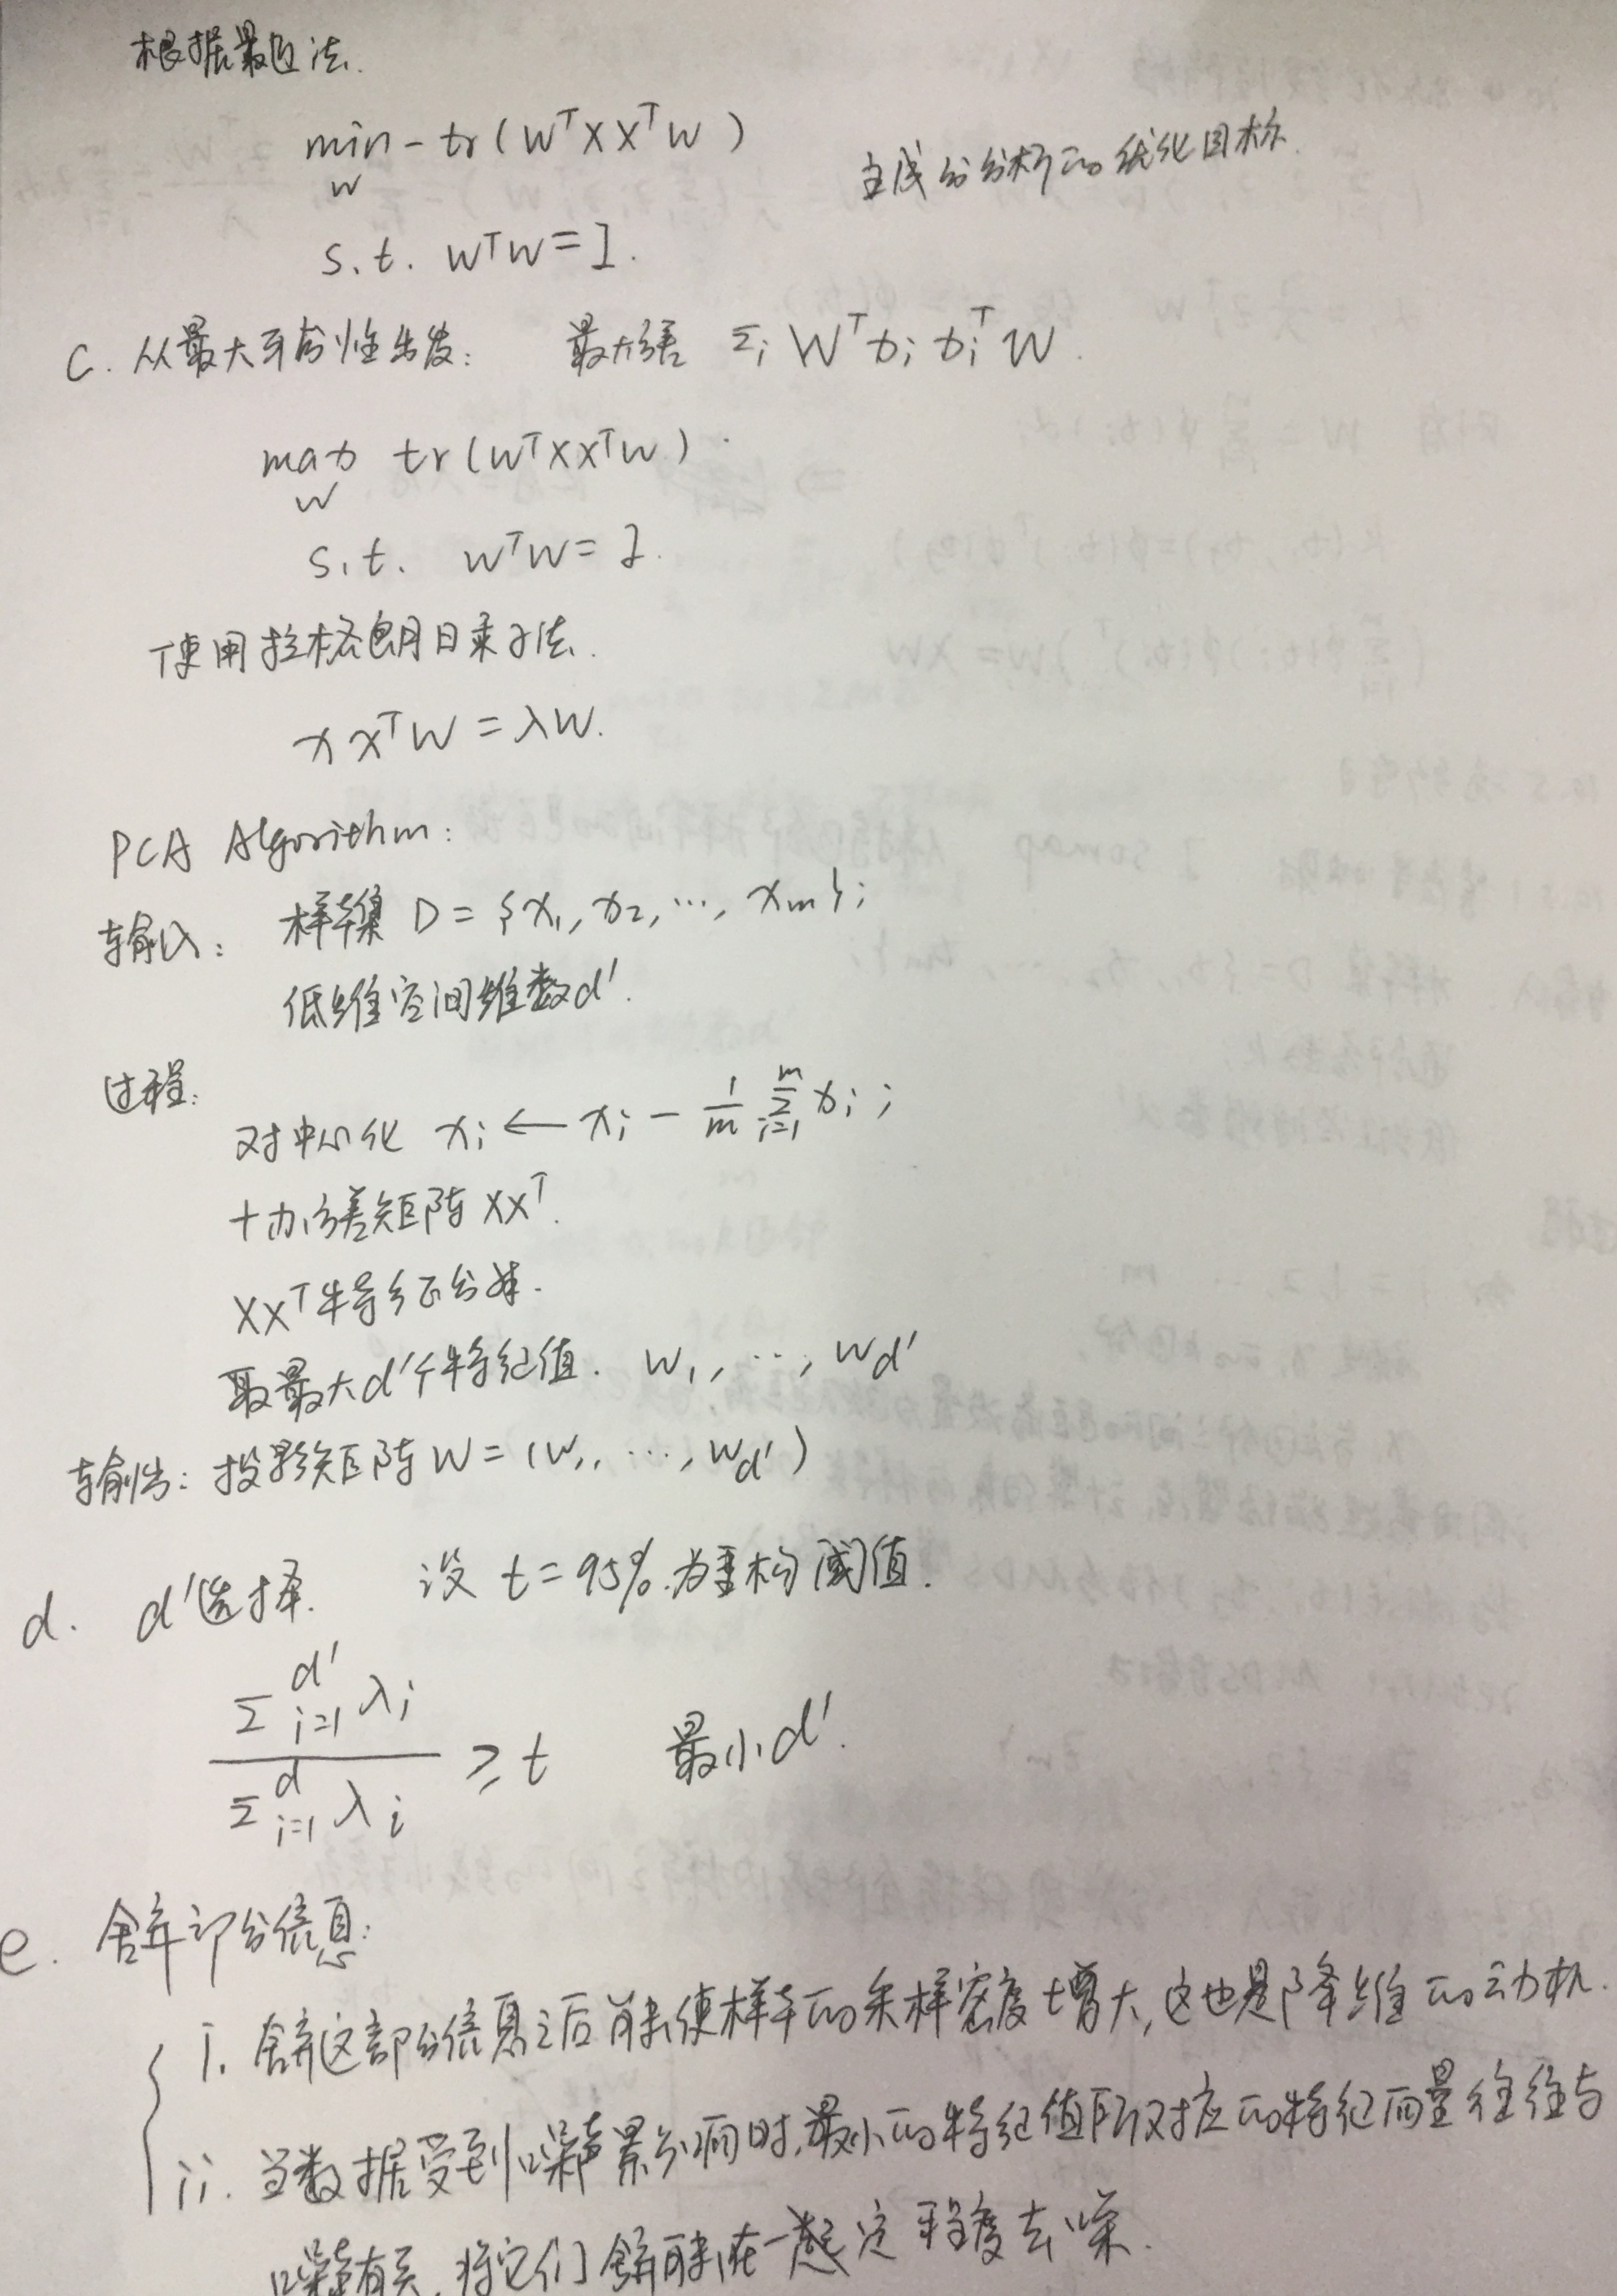 根据最近法.
min - tr(WᵀXXᵀW) 主成分分析的优化目标.
W
s.t. WᵀW = I.
C. 从最大可分性出发: 最大方差 Σᵢ Wᵀxᵢxᵢᵀ W.
max tr(WᵀXXᵀW).
W
s.t. WᵀW = I.
使用拉格朗日乘子法.
XXᵀW = λW.
PCA Algorithm:
输入: 样本集 D = {x₁, x₂, ..., xₘ};
低维空间维数d'.
过程:
对中心化 xᵢ ← xᵢ - 1/m Σᵢ₌₁ᵐ xᵢ;
协方差矩阵 XXᵀ.
XXᵀ特征分解.
取最大d'个特征值. W₁, ..., W_d'
输出: 投影矩阵 W = (W₁, ..., W_d')
d. d'选择. 设 t = 95% 为重构阈值.
Σ_{i=1}^{d'} λᵢ / Σ_{i=1}^{d} λᵢ ≥ t 最小d'.
e. 舍弃部分信息:
i. 舍弃这部分信息之后能使样本的采样密度增大,这也是降维的动机.
ii. 当数据受到噪声影响时,最小的特征值所对应的特征向量往往与
噪声有关,将它们舍弃能在一定程度去噪.